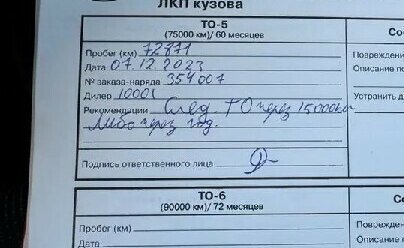 ЛКП кузова
ТО-5
(75000 км)/ 60 месяцев
Со
Пробег (км) 72871
Повреждени
Дата 07.12.2023
Описание по
№ заказа-наряда 354007
Дилер 10001
Устранить д
Рекомендации След. ТО через 15000км
либо через год.
Подпись ответственного лица
ТО-6
(90000 км)/ 72 месяцев
Со
Пробег (км)
Поврежде
Дата
Описание